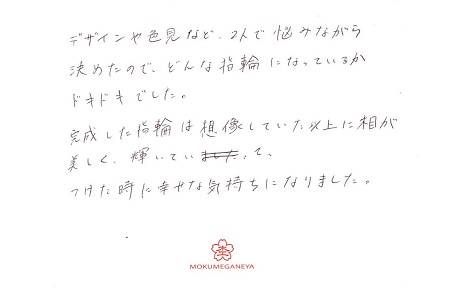 デザインや色見など、2人で悩みながら
決めたので、どんな指輪になっているか
ドキドキでした。
完成した指輪は想像していた以上に相が
美しく、輝いていて、
つけた時に幸せな気持ちになりました。
MOKUMEGANEYA